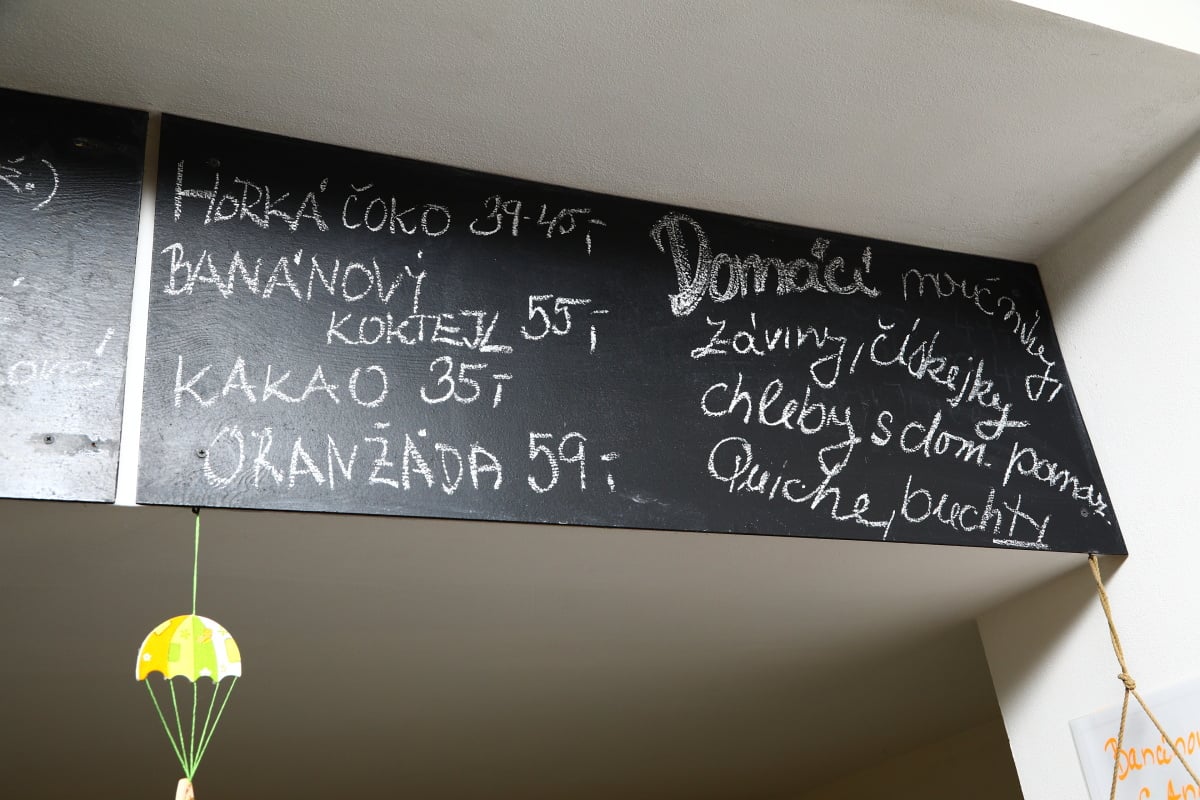 HORKÁ ČOKO 39-45,-
BANÁNOVÝ
KOKTEJL 55,-
KAKAO 35,-
ORANŽÁDA 59,-
Domácí moučníky,
záviny, čískejky
chleby s dom. pomaz.
Quiche, buchty
Banánov